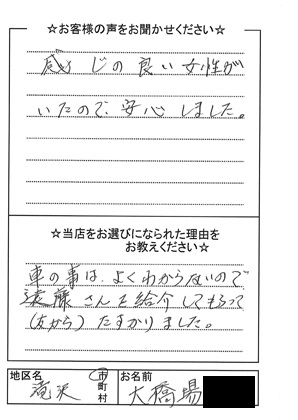 ☆お客様の声をお聞かせください☆
感じの良い女性が
いたので、安心しました。
☆当店をお選びになられた理由を
お教えください☆
車の事は、よくわからないので
遠藤さんを紹介してもらって
(友から) たすかりました。
地区名 滝沢 市町村 お名前 大橋場